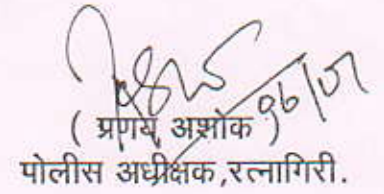 ( प्रणय अशोक )
पोलीस अधीक्षक,रत्नागिरी.